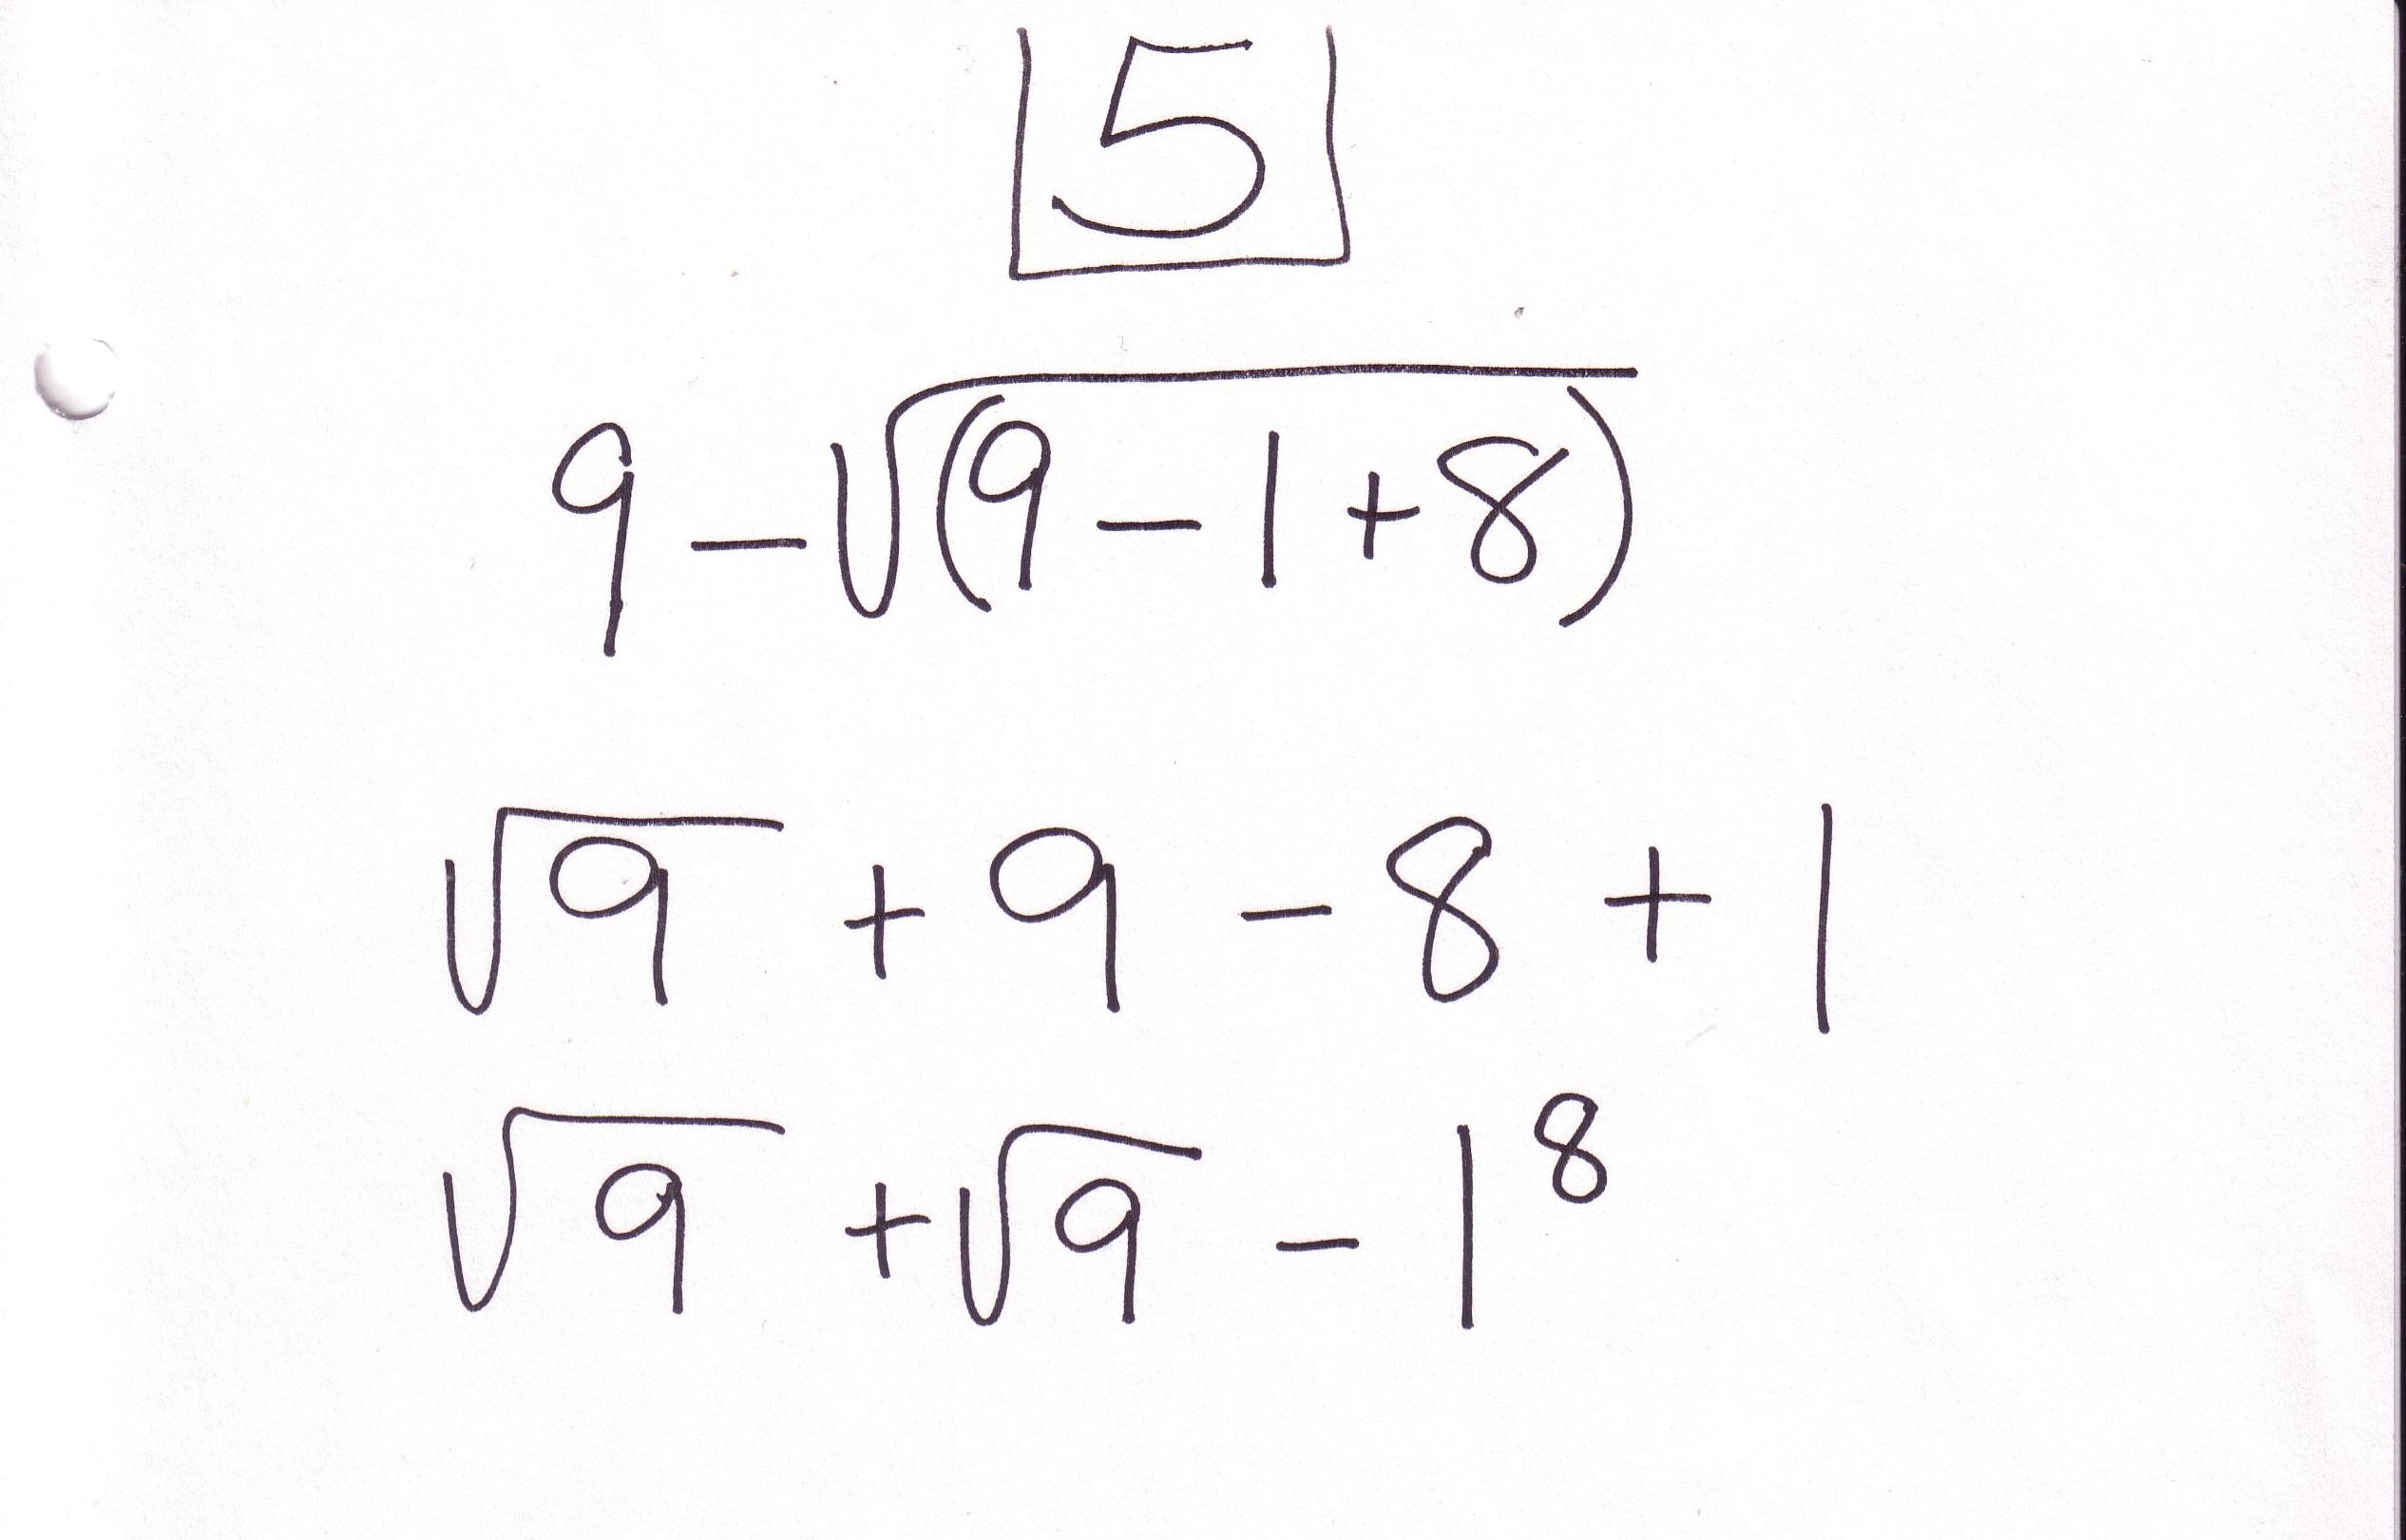 5
9 - √(9 - 1 + 8)
√9 + 9 - 8 + 1
√9 + √9 - 1⁸